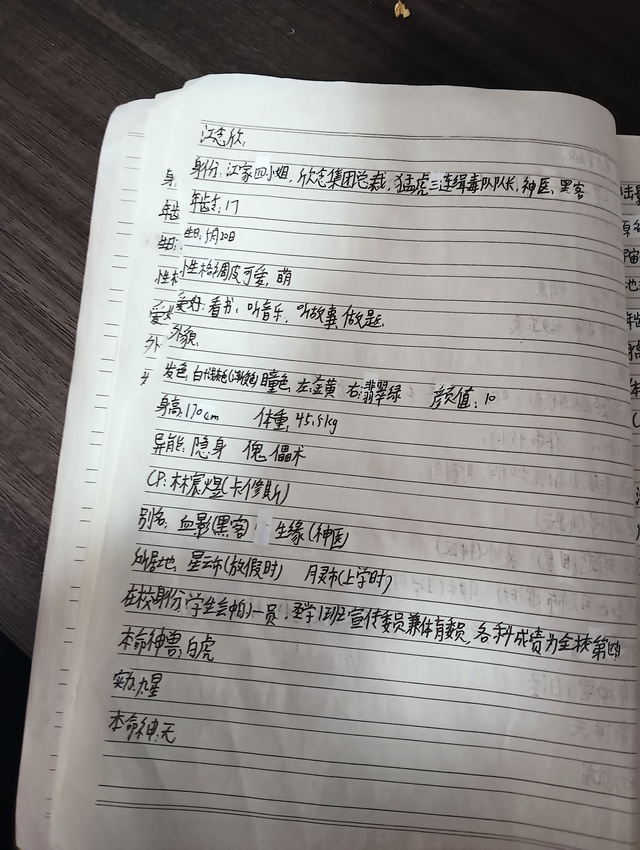 江念欣
身份：江家四小姐，欣念集团总裁，猛虎三连缉毒队队长，神医、黑客
年龄：17
生日：5月20日
性格：调皮可爱，萌
爱好：看书，听音乐，听故事，做题
外貌
发色：白 瞳色，左：金黄 右：翡翠绿 颜值：10
身高：170cm 体重：45.5kg
异能：隐身 傀儡术
CP：林震煜（卡修斯）
别名：血影（黑客） 生缘（神医）
所居地：星云市（放假时） 月灵市（上学时）
在校身份：学生会中的一员，12班 宣传委员兼体育委员，各科成绩为全校第
本命神兽：白虎
实力：九星
本命神：无
身
年龄
生日：
性格
爱好
外